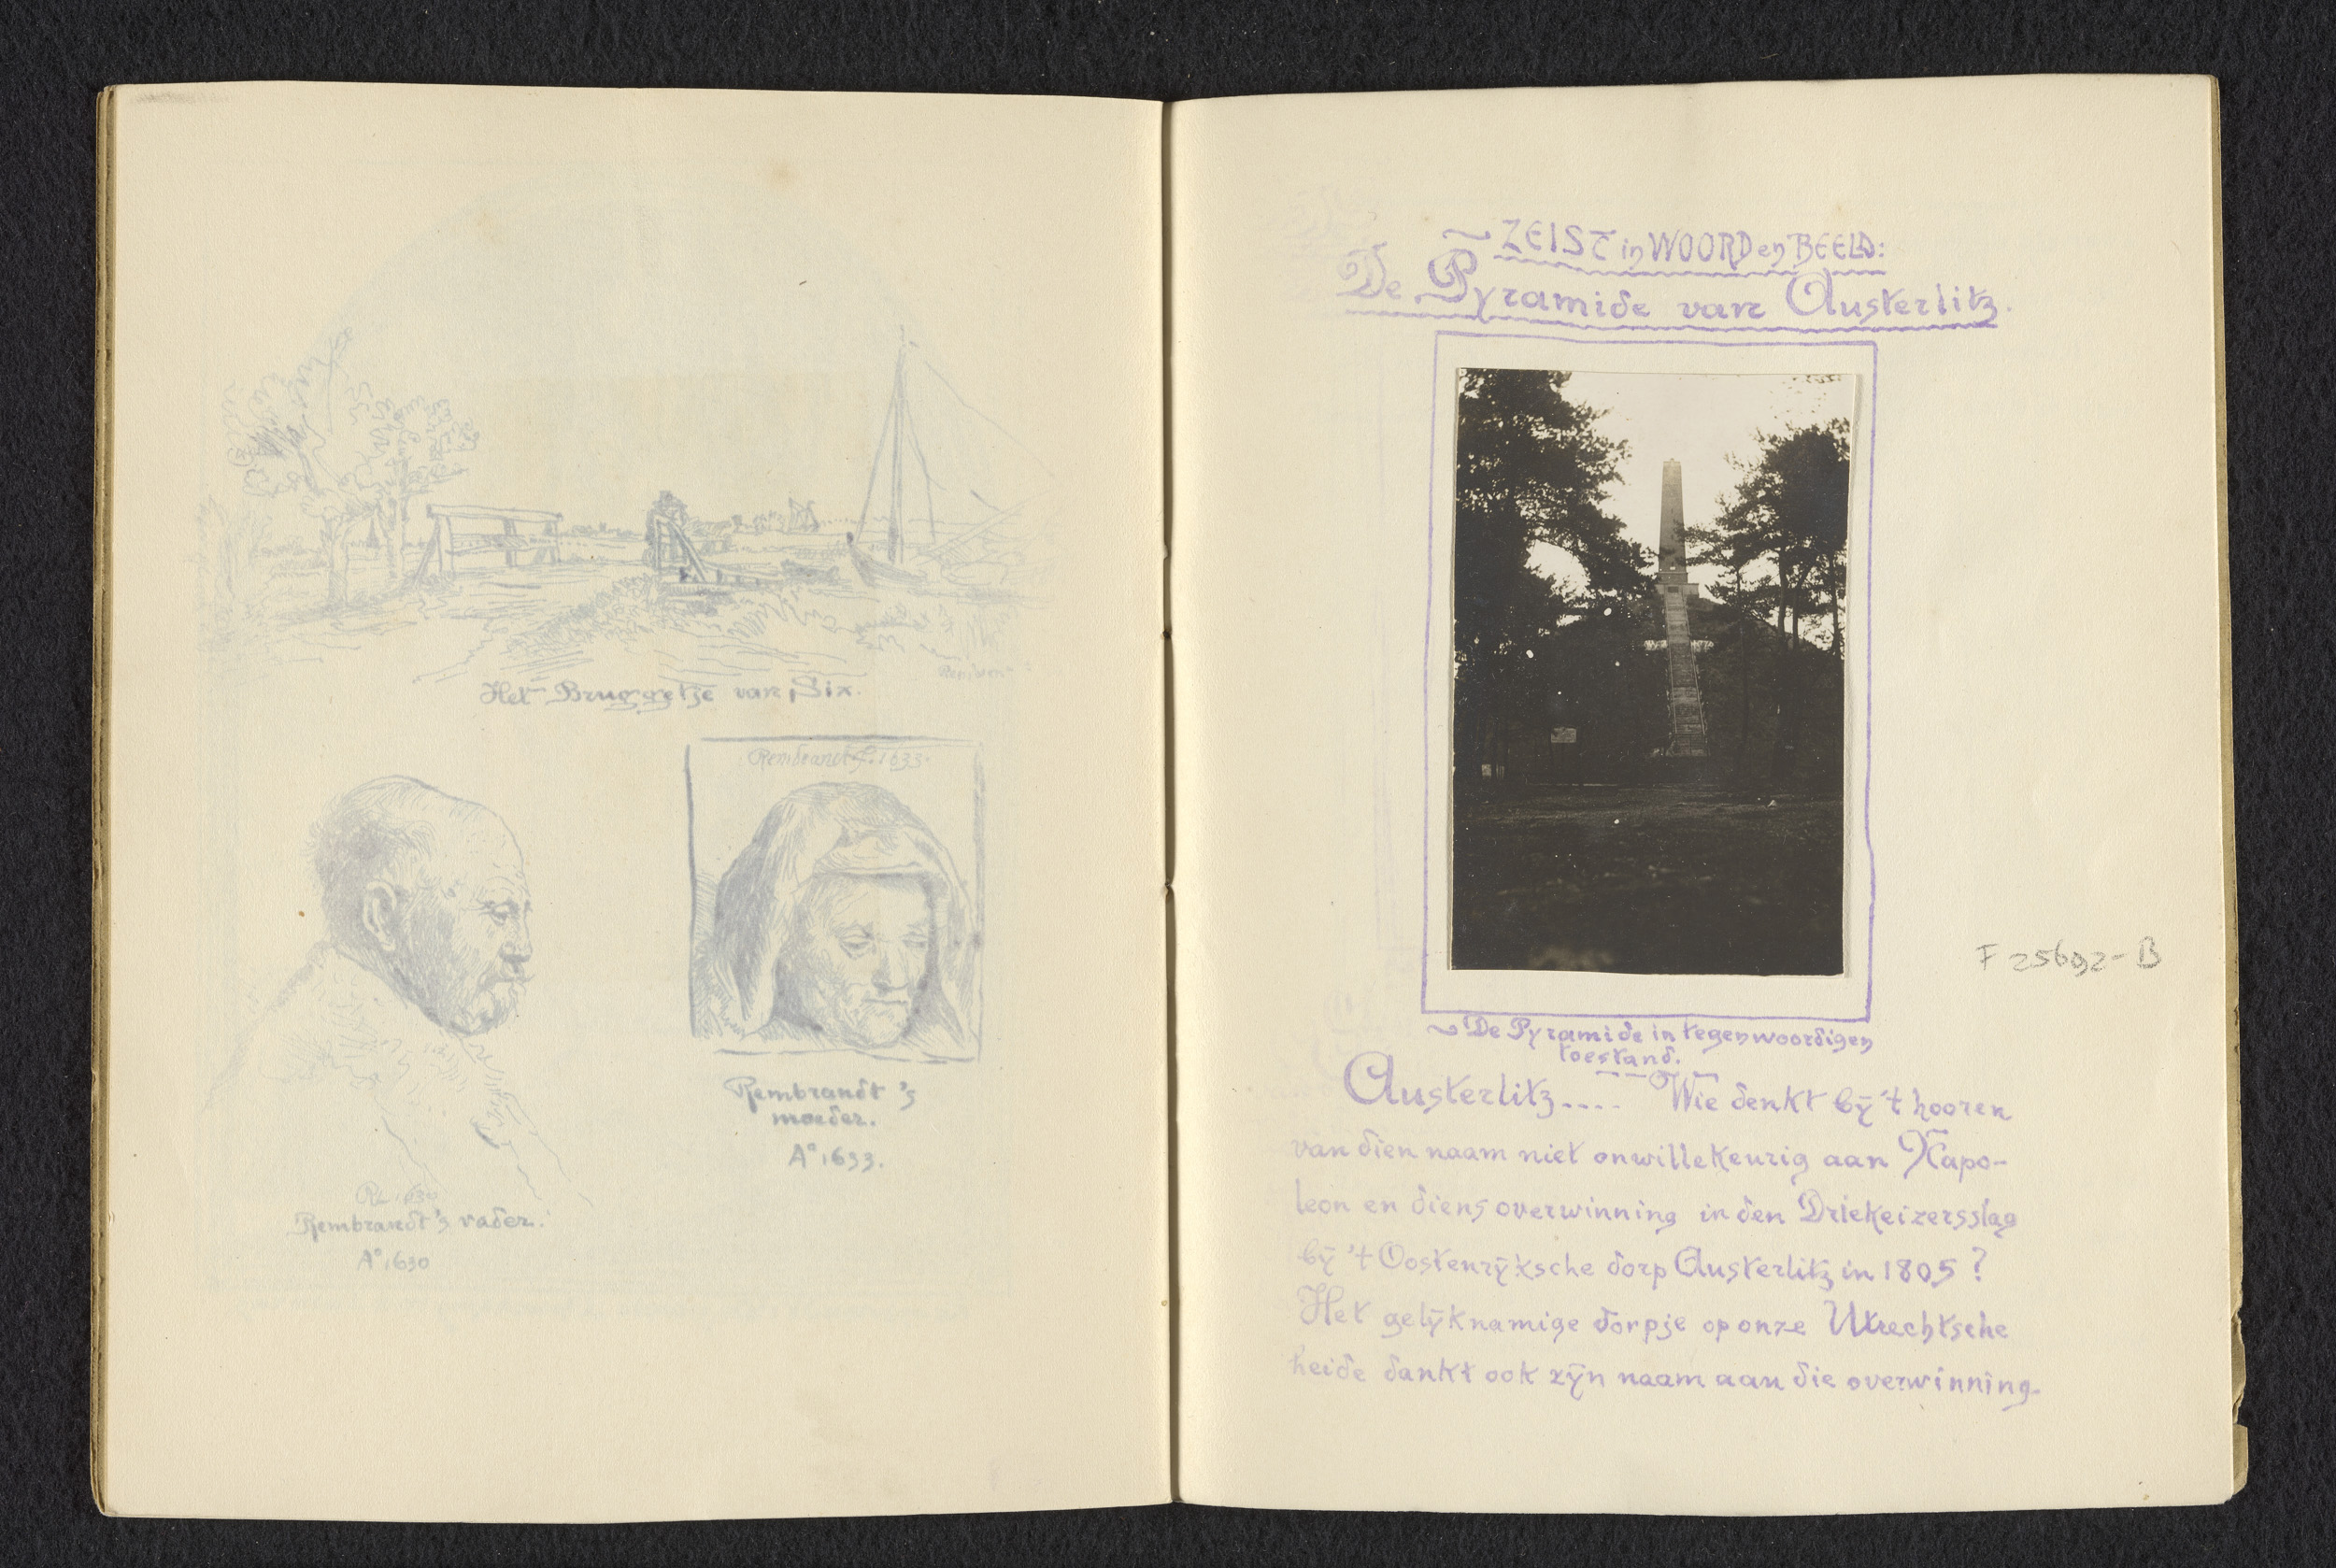 Het Bruggetje van Six.
Rembrandt f. 1633.
Rembrandt's
moeder.
A° 1633.
RL 1630
Rembrandt's vader.
A° 1630
ZEIST in WOORD en BEELD:
De Pyramide van Austerlitz.
F 25692-B
De Pyramide in tegenwoordigen
toestand.
Austerlitz.... Wie denkt bij 't hooren
van dien naam niet onwillekeurig aan Napo-
leon en diens overwinning in den Driekeizersslag
bij 't Oostenrijksche dorp Austerlitz in 1805?
Het gelijknamige dorpje op onze Utrechtsche
heide dankt ook zijn naam aan die overwinning.